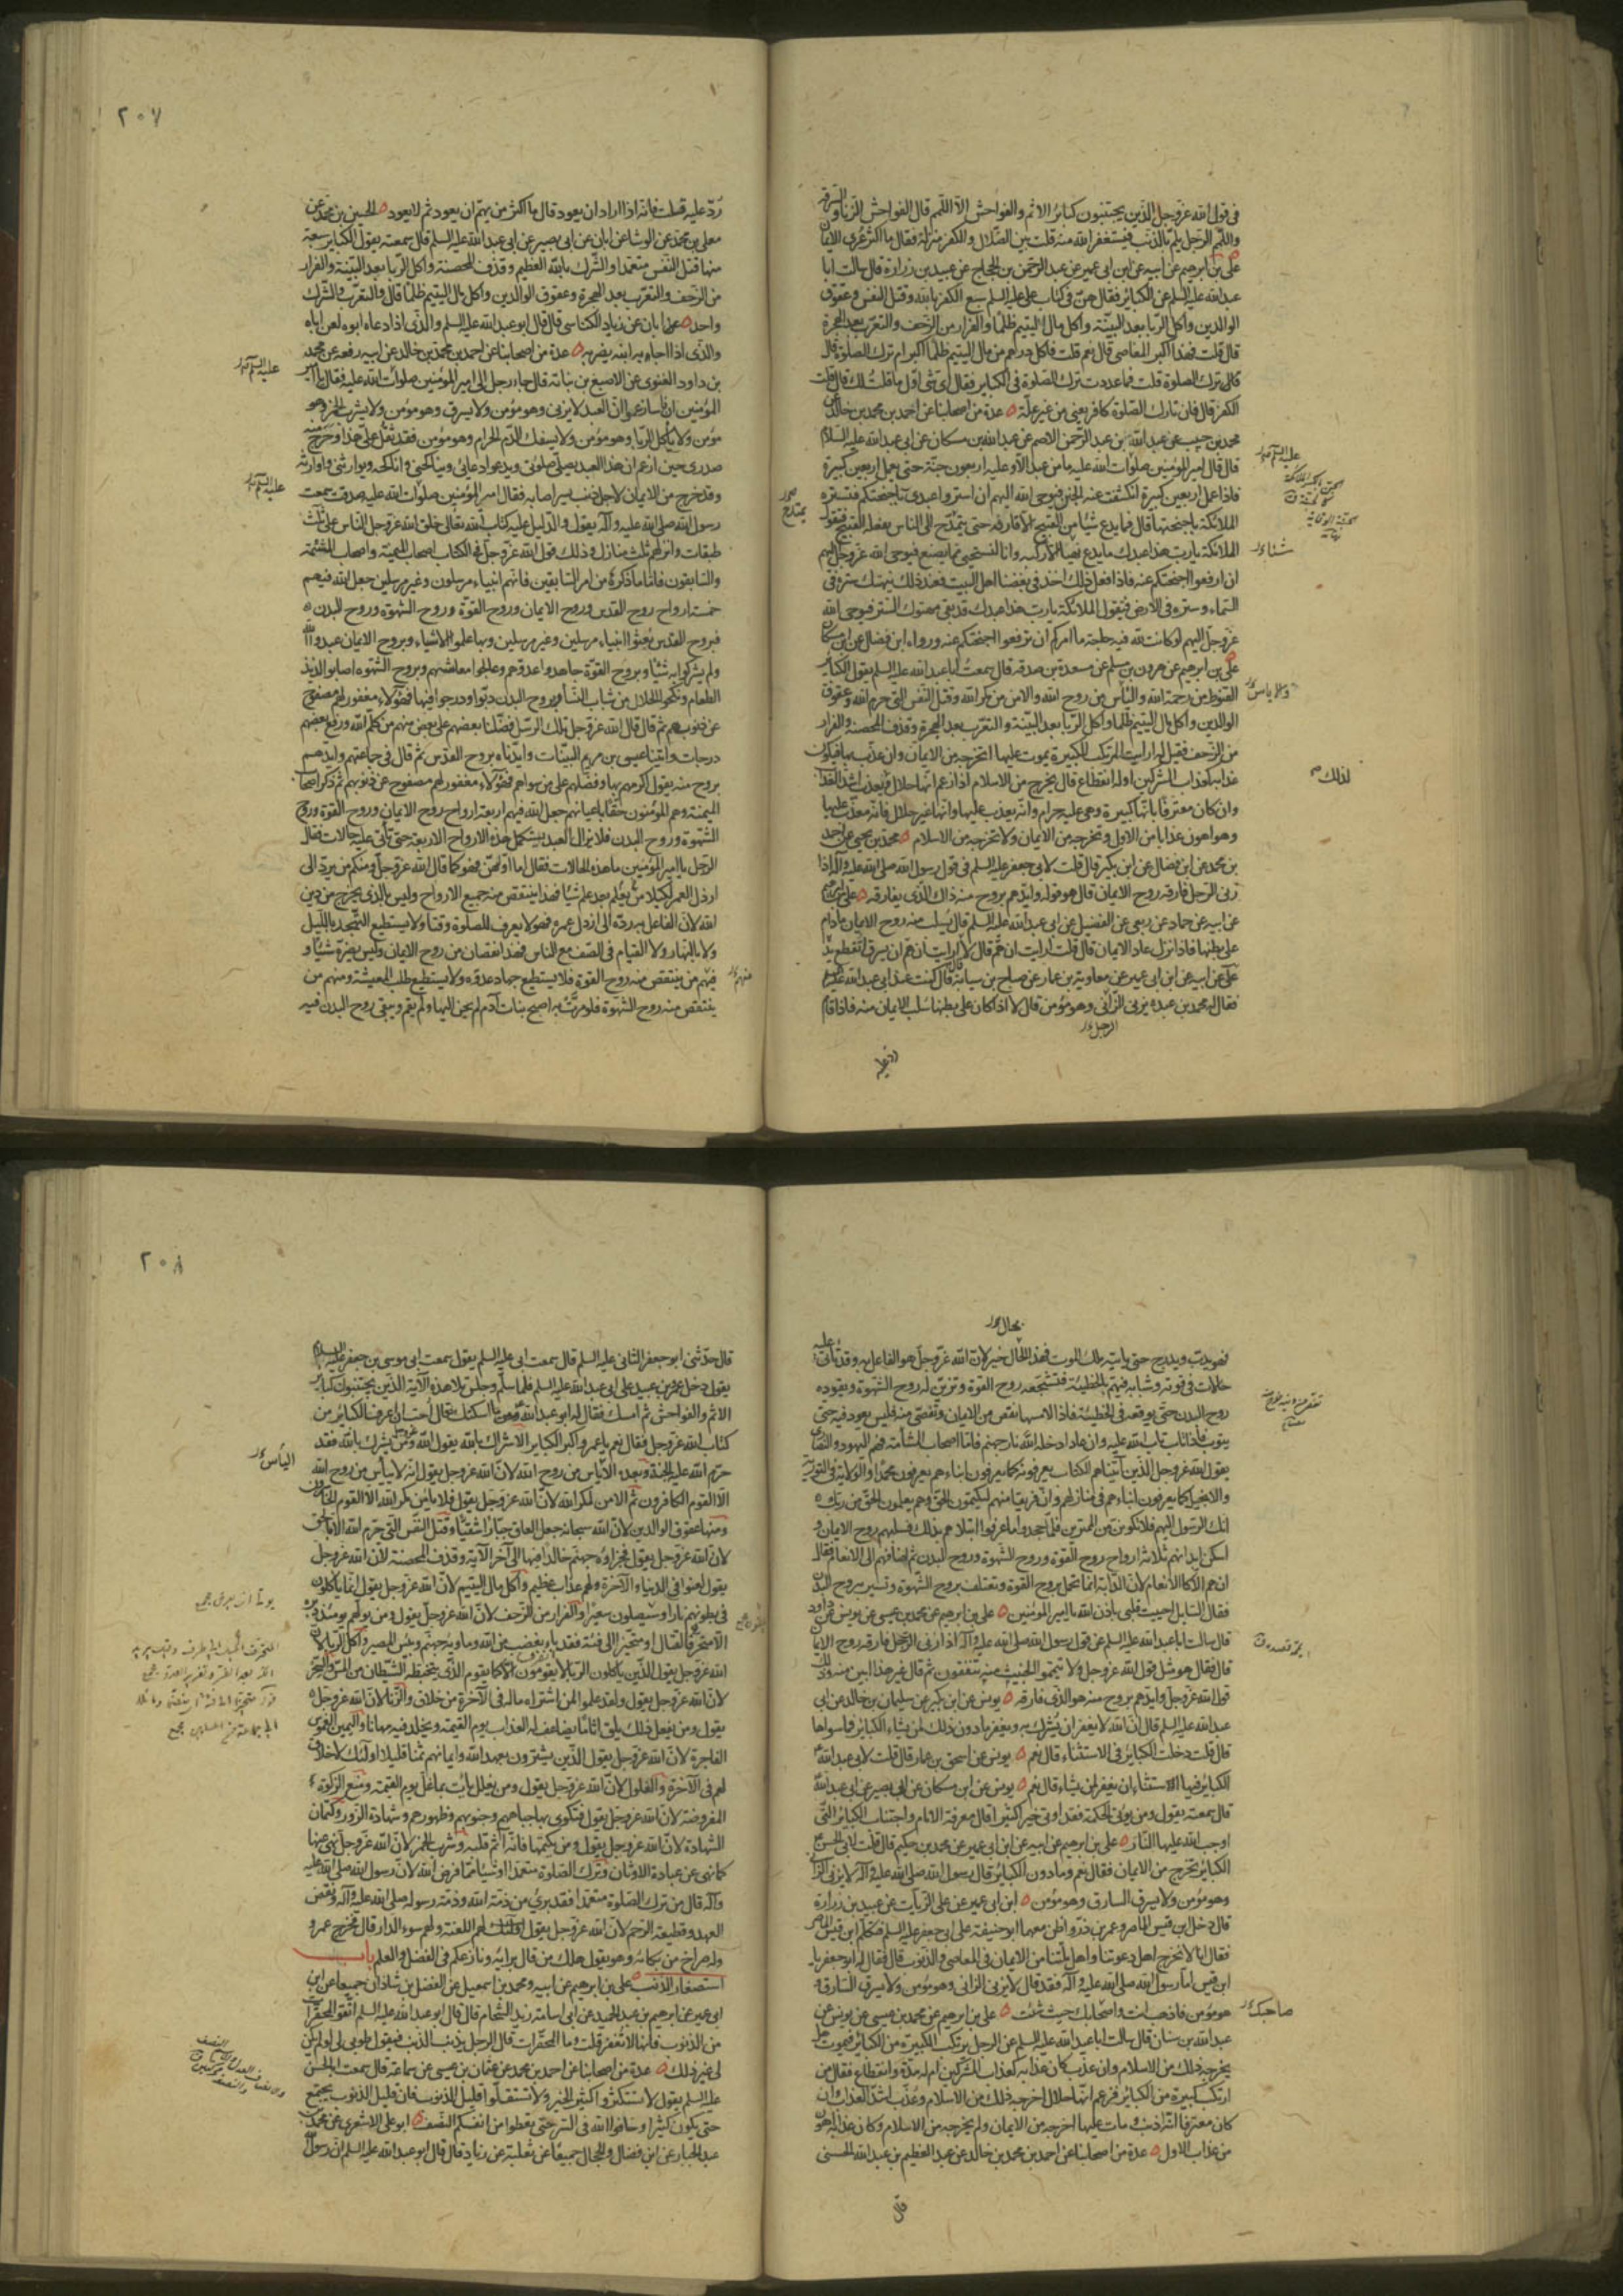 فى قول الله عزوجل الذين يجتنبون كبائر الاثم والفواحش الا اللمم قال الفواحش الزنا والسرقة
واللمم الرجل يلم بالذنب فيستغفر الله منه قلت بين الضلال والكفر منزلة فقال ما اكثر عرى الايمان
على بن ابرهيم عن ابيه عن ابن ابى عمير عن عبد الرحمن بن الحجاج عن عبيد بن زرارة قال سالت ابا
عبد الله عليه السلم عن الكبائر فقال هن فى كتاب على عليه السلم سبع الكفر بالله وقتل النفس وعقوق
الوالدين واكل الربا بعد البينة واكل مال اليتيم ظلما والفرار من الزحف والتعرب بعد الهجرة
قال قلت فهذا اكبر المعاصى قال نعم قلت فاكل درهم من مال اليتيم ظلما اكبر ام ترك الصلوة قال
قال ترك الصلوة قلت فما عددت ترك الصلوة فى الكبائر فقال اى شئ اول ما قلت لك قال قلت
الكفر قال فان تارك الصلوة كافر يعنى من غير علة عدة من اصحابنا عن احمد بن محمد بن خالد عن
محمد بن حبيب عن عبد الله بن عبد الرحمن الاصم عن عبد الله بن مسكان عن ابى عبد الله عليه السلام
قال قال امير المؤمنين صلوات الله عليه ما من عبد الا وعليه اربعون جنة حتى يعمل اربعين كبيرة
فاذا عمل اربعين كبيرة انكشفت عنه الجنن فيوحى الله اليهم ان استروا عبدى باجنحتكم فتستره
الملائكة باجنحتها قال فما يدع شيئا من القبيح الا قارفه حتى يتمدح الى الناس بفعله القبيح فيقول
الملائكة يارب هذا عبدك ما يدع شيئا الا ركبه وانا لنستحيى مما يصنع فيوحى الله عزوجل اليهم
ان ارفعوا اجنحتكم عنه فاذا فعل ذلك اخذ فى بغضنا اهل البيت فعند ذلك ينهتك ستره فى
السماء وستره فى الارض فيقول الملائكة يارب هذا عبدك قد بقى مهتوك الستر فيوحى الله
عزوجل اليهم لو كانت لله فيه حاجة ما امركم ان ترفعوا اجنحتكم عنه ورواه ابن فضال عن ابن مسكان
على بن ابرهيم عن هرون بن مسلم عن مسعدة بن صدقة قال سمعت ابا عبد الله عليه السلم يقول الكبائر
القنوط من رحمة الله والياس من روح الله والامن من مكر الله وقتل النفس التى حرم الله وعقوق
الوالدين واكل مال اليتيم ظلما واكل الربا بعد البينة والتعرب بعد الهجرة وقذف المحصنة والفرار
من الزحف فقيل له ارايت المرتكب للكبيرة يموت عليها اتخرجه من الايمان وان عذب بها فيكون
عذابه كعذاب المشركين او له انقطاع قال يخرج من الاسلام اذا زعم انها حلال ولذلك يعذب اشد العذاب
وان كان معترفا بانها كبيرة وهى عليه حرام وانه يعذب عليها وانها غير حلال فانه معذب عليها
وهو اهون عذابا من الاول وتخرجه من الايمان ولا تخرجه من الاسلام محمد بن يحيى عن احمد
بن محمد عن ابن فضال عن ابن بكير قال قلت لابى جعفر عليه السلم فى قول رسول الله صلى الله عليه وآله اذا
زنى الرجل فارقه روح الايمان قال هو قوله وايدهم بروح منه ذاك الذى يفارقه على بن ابرهيم
عن ابيه عن حماد عن ربعى عن الفضيل عن ابى عبد الله عليه السلم قال يسلب منه روح الايمان مادام
على بطنها فاذا نزل عاد الايمان قال قلت ارايت ان هم قال لا ارايت ان هم ان يسرق اتقطع يده
على عن ابيه عن ابن ابى عمير عن معاوية بن عمار عن صباح بن سيابة قال كنت عند ابى عبد الله عليه السلم
فقال له محمد بن عبده يزنى الزانى وهو مؤمن قال لا اذا كان على بطنها سلب الايمان منه فاذا قام
رد عليه
٢٠٧
رد عليه قلت فانه اذا اراد ان يعود قال ما اكثر من يهم ان يعود ثم لا يعود الحسين بن محمد عن
معلى بن محمد عن الوشا عن ابان عن ابى بصير عن ابى عبد الله عليه السلم قال سمعته يقول الكبائر سبعة
منها قتل النفس متعمدا والشرك بالله العظيم وقذف المحصنة واكل الربا بعد البينة والفرار
من الزحف والتعرب بعد الهجرة وعقوق الوالدين واكل مال اليتيم ظلما قال والتعرب والشرك
واحد عنه ابان عن زياد الكناسى قال قال ابو عبد الله عليه السلم والذى اذا دعاه ابوه لعن اباه
والذى اذا اجابه ابنه يضربه عدة من اصحابنا عن احمد بن محمد بن خالد عن ابيه رفعه عن محمد
بن داود الغنوى عن الاصبغ بن نباتة قال جاء رجل الى امير المؤمنين صلوات الله عليه فقال يا امير
المؤمنين ان ناسا زعموا ان العبد لا يزنى وهو مؤمن ولا يسرق وهو مؤمن ولا يشرب الخمر وهو
مؤمن ولا ياكل الربا وهو مؤمن ولا يسفك الدم الحرام وهو مؤمن فقد ثقل على هذا وحرج منه
صدرى حين ازعم ان هذا العبد يصلى صلوتى ويدعو دعائى ويناكحنى واناكحه ويوارثنى واوارثه
وقد خرج من الايمان لاجل ذنب يسير اصابه فقال امير المؤمنين صلوات الله عليه صدقت سمعت
رسول الله صلى الله عليه وآله يقول والدليل عليه كتاب الله تعالى خلق الله عزوجل الناس على ثلث
طبقات وانزلهم ثلث منازل وذلك قول الله عزوجل فى الكتاب اصحاب الميمنة واصحاب المشئمة
والسابقون فاما ما ذكره من امر السابقين فانهم انبياء مرسلون وغير مرسلين جعل الله فيهم
خمسة ارواح روح القدس وروح الايمان وروح القوة وروح الشهوة وروح البدن
فبروح القدس بعثوا انبياء مرسلين وغير مرسلين وبها علموا الاشياء وبروح الايمان عبدوا الله
ولم يشركوا به شيئا وبروح القوة جاهدوا عدوهم وعالجوا معاشهم وبروح الشهوة اصابوا لذيذ
الطعام ونكحوا الحلال من شباب النسا وبروح البدن دبوا ودرجوا فيها فهؤلاء مغفور لهم مصفوح
عن ذنوبهم ثم قال قال الله عزوجل تلك الرسل فضلنا بعضهم على بعض منهم من كلم الله ورفع بعضهم
درجات واتينا عيسى بن مريم البينات وايدناه بروح القدس ثم قال فى جماعتهم وايدهم
بروح منه يقول اكرمهم بها وفضلهم على من سواهم فهؤلاء مغفور لهم مصفوح عن ذنوبهم ثم ذكر اصحاب
الميمنة وهم المؤمنون حقا باعيانهم جعل الله فيهم اربعة ارواح روح الايمان وروح القوة وروح
الشهوة وروح البدن فلا يزال العبد يستكمل هذه الارواح الاربعة حتى تأتى عليه حالات فقال
الرجل يا امير المؤمنين ما هذه الحالات فقال اما اولهن فهو كما قال الله عزوجل ومنكم من يرد الى
ارذل العمر لكيلا يعلم بعد علم شيئا فهذا ينتقص منه جميع الارواح وليس بالذى يخرج من دين
الله لان الفاعل به رده الى ارذل عمره فهو لا يعرف للصلوة وقتا ولا يستطيع التهجد بالليل
ولا بالنهار ولا القيام فى الصف مع الناس فهذا نقصان من روح الايمان وليس يضره شيئا و
فيهم من ينتقص منه روح القوة فلا يستطيع جهاد عدوه ولا يستطيع طلب المعيشة ومنهم من
ينتقص منه روح الشهوة فلو مرت به اصبح بنات آدم لم يحن اليها ولم يقم ويبقى روح البدن فيه
٢٠٨
فهو يدب ويدرج حتى ياتيه ملك الموت فهذا الحال خير لان الله عزوجل هو الفاعل به وقد تأتى عليه
حالات فى قوته وشبابه فيهم بالخطيئة فتشجعه روح القوة وتزين له روح الشهوة ويقوده
روح البدن حتى يوقعه فى الخطيئة فاذا لامسها نقص من الايمان وتفصى منه فليس يعود فيه حتى
يتوب فاذا تاب تاب الله عليه وان عاد ادخله الله نار جهنم فاما اصحاب المشأمة فهم اليهود والنصارى
يقول الله عزوجل الذين آتيناهم الكتاب يعرفونه كما يعرفون ابناءهم يعرفون محمدا والولاية فى التورية
والانجيل كما يعرفون ابناءهم فى منازلهم وان فريقا منهم ليكتمون الحق وهم يعلمون الحق من ربك
انك الرسول اليهم فلا تكونن من الممترين فلما جحدوا ما عرفوا ابتلاهم بذلك فسلبهم روح الايمان و
اسكن ابدانهم ثلاثة ارواح روح القوة وروح الشهوة وروح البدن ثم اضافهم الى الانعام فقال
ان هم الا كالانعام لان الدابة انما تحمل بروح القوة وتعتلف بروح الشهوة وتسير بروح البدن
فقال السايل احييت قلبى باذن الله يا امير المؤمنين على بن ابرهيم عن محمد بن عيسى عن يونس عن داود
قال سالت ابا عبد الله عليه السلم عن قول رسول الله صلى الله عليه وآله اذا زنى الرجل فارقه روح الايمان
قال فقال هو مثل قول الله عزوجل ولا تيمموا الخبيث منه تنفقون ثم قال غير هذا ابين منه ذلك
قول الله عزوجل وايدهم بروح منه هو الذى فارقه يونس عن ابن بكير عن سليمان بن خالد عن ابى
عبد الله عليه السلم قال ان الله لا يغفر ان يشرك به ويغفر ما دون ذلك لمن يشاء الكبائر فما سواها
قال قلت دخلت الكبائر فى الاستثناء قال نعم يونس عن اسحق بن عمار قال قلت لابى عبد الله
الكبائر فيها الاستثناء ان يغفر لمن يشاء قال نعم يونس عن ابن مسكان عن ابى بصير عن ابى عبد الله
قال سمعته يقول ومن يؤتى الحكمة فقد اوتى خيرا كثيرا قال معرفة الامام واجتناب الكبائر التى
اوجب الله عليها النار على بن ابرهيم عن ابيه عن ابن ابى عمير عن محمد بن حكيم قال قلت لابى الحسن
الكبائر تخرج من الايمان فقال نعم وما دون الكبائر قال رسول الله صلى الله عليه وآله لا يزنى الزانى
وهو مؤمن ولا يسرق السارق وهو مؤمن ابن ابى عمير عن على الزيات عن عبيد بن زرارة
قال دخل ابن قيس الماصر وعمر بن ذر واظن معهما ابو حنيفة على ابى جعفر عليه السلم فتكلم ابن قيس الماصر
فقال انا لا نخرج اهل دعوتنا واهل ملتنا من الايمان فى المعاصى والذنوب قال فقال له ابو جعفر يا
ابن قيس اما رسول الله صلى الله عليه وآله فقد قال لا يزنى الزانى وهو مؤمن ولا يسرق السارق و
هو مؤمن فاذهب انت واصحابك حيث شئت على بن ابرهيم عن محمد بن عيسى عن يونس عن
عبد الله بن سنان قال سالت ابا عبد الله عليه السلم عن الرجل يرتكب الكبيرة من الكبائر فيموت هل
يخرجه ذلك من الاسلام وان عذب كان عذابه كعذاب المشركين ام له مدة وانقطاع فقال من
ارتكب كبيرة من الكبائر فزعم انها حلال اخرجه ذلك من الاسلام وعذب اشد العذاب وان
كان معترفا انه اذنب ومات عليها اخرجه من الايمان ولم يخرجه من الاسلام وكان عذابه اهون
من عذاب الاول عدة من اصحابنا عن احمد بن محمد بن خالد عن عبد العظيم بن عبد الله الحسنى
قال
قال حدثنى ابو جعفر الثانى عليه السلم قال سمعت ابى عليه السلم يقول سمعت ابى موسى بن جعفر عليه السلام
يقول دخل عمرو بن عبيد على ابى عبد الله عليه السلم فلما سلم وجلس تلا هذه الآية الذين يجتنبون كبائر
الاثم والفواحش ثم امسك فقال له ابو عبد الله ما اسكتك قال احب ان اعرف الكبائر من
كتاب الله عزوجل فقال نعم يا عمرو اكبر الكبائر الاشراك بالله يقول الله ومن يشرك بالله فقد
حرم الله عليه الجنة وبعده الاياس من روح الله لان الله عزوجل يقول انه لا ييأس من روح الله
الا القوم الكافرون ثم الامن لمكر الله لان الله عزوجل يقول فلا يأمن مكر الله الا القوم الخاسرون
ومنها عقوق الوالدين لان الله سبحانه جعل العاق جبارا شقيا وقتل النفس التى حرم الله الا بالحق
لان الله عزوجل يقول فجزاؤه جهنم خالدا فيها الى آخر الآية وقذف المحصنة لان الله عزوجل
يقول لعنوا فى الدنيا والآخرة ولهم عذاب عظيم واكل مال اليتيم لان الله عزوجل يقول انما ياكلون
فى بطونهم نارا وسيصلون سعيرا والفرار من الزحف لان الله عزوجل يقول ومن يولهم يومئذ دبره
الا متحرفا لقتال او متحيزا الى فئة فقد باء بغضب من الله وماويه جهنم وبئس المصير واكل الربا لان
الله عزوجل يقول الذين ياكلون الربا لا يقومون الا كما يقوم الذى يتخبطه الشيطان من المس والسحر
لان الله عزوجل يقول ولقد علموا لمن اشتراه ماله فى الآخرة من خلاق والزنا لان الله عزوجل
يقول ومن يفعل ذلك يلق اثاما يضاعف له العذاب يوم القيمة ويخلد فيه مهانا واليمين الغموس
الفاجرة لان الله عزوجل يقول الذين يشترون بعهد الله وايمانهم ثمنا قليلا اولئك لا خلاق
لهم فى الآخرة والغلول لان الله عزوجل يقول ومن يغلل يأت بما غل يوم القيمة ومنع الزكوة
المفروضة لان الله عزوجل يقول فتكوى بها جباههم وجنوبهم وظهورهم وشهادة الزور وكتمان
الشهادة لان الله عزوجل يقول ومن يكتمها فانه آثم قلبه وشرب الخمر لان الله عزوجل نهى عنها
كما نهى عن عبادة الاوثان وترك الصلوة متعمدا او شيئا مما فرض الله لان رسول الله صلى الله عليه
وآله قال من ترك الصلوة متعمدا فقد برئ من ذمة الله وذمة رسوله صلى الله عليه وآله ونقض
العهد وقطيعة الرحم لان الله عزوجل يقول اولئك لهم اللعنة ولهم سوء الدار قال فخرج عمرو
وله صراخ من بكائه وهو يقول هلك من قال برايه ونازعكم فى الفضل والعلم باب
استصغار الذنب على بن ابرهيم عن ابيه ومحمد بن اسمعيل عن الفضل بن شاذان جميعا عن ابن
ابى عمير عن ابرهيم بن عبد الحميد عن ابى اسامة زيد الشحام قال قال ابو عبد الله عليه السلم اتقوا المحقرات
من الذنوب فانها لا تغفر قلت وما المحقرات قال الرجل يذنب الذنب فيقول طوبى لى لو لم يكن
لى غير ذلك عدة من اصحابنا عن احمد بن محمد عن عثمان بن عيسى عن سماعة قال سمعت ابا الحسن
عليه السلم يقول لا تستكثروا كثير الخير ولا تستقلوا قليل الذنوب فان قليل الذنوب يجتمع
حتى يكون كثيرا وخافوا الله فى السر حتى يعطوا من انفسكم النصف ابو على الاشعرى عن محمد بن
عبد الجبار عن ابن فضال والحجال جميعا عن ثعلبة عن زياد قال قال ابو عبد الله عليه السلم ان رسول الله